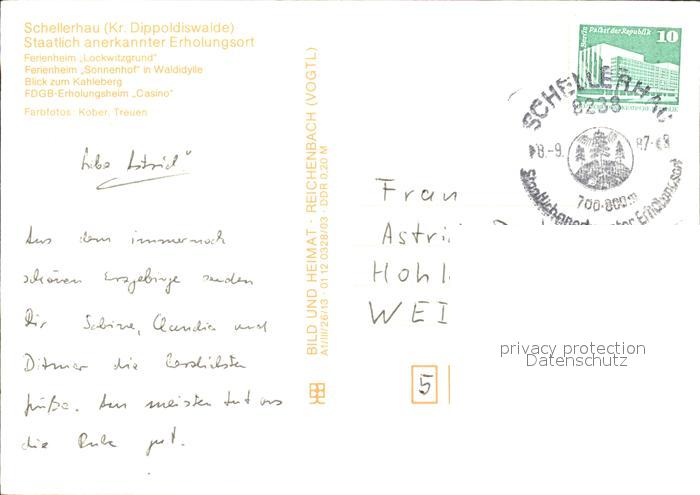 Schellerhau (Kr. Dippoldiswalde)
Staatlich anerkannter Erholungsort
Ferienheim „Lockwitzgrund“
Ferienheim „Sonnenhof“ in Waldidylle
Blick zum Kahleberg
FDGB-Erholungsheim „Casino“
Farbfotos: Kober, Treuen
Liebe Astrid"
Aus dem immernoch
schönen Erzgebirge senden
Dir Sabine, Claudia und
Ditmar die herzlichsten
Grüße. Am meisten tut uns
die Ruhe gut.
BILD UND HEIMAT · REICHENBACH (VOGTL)
A1/III/26/13 · 01 12 0328/03 · DDR 0,20 M
Berlin Palast der Republik
10
SCHELLERHAU
8238
8.-9.
700-800m
Staatlich anerkannter Erholungsort
Frau
Astri
Hohl
WEI
5
privacy protection
Datenschutz